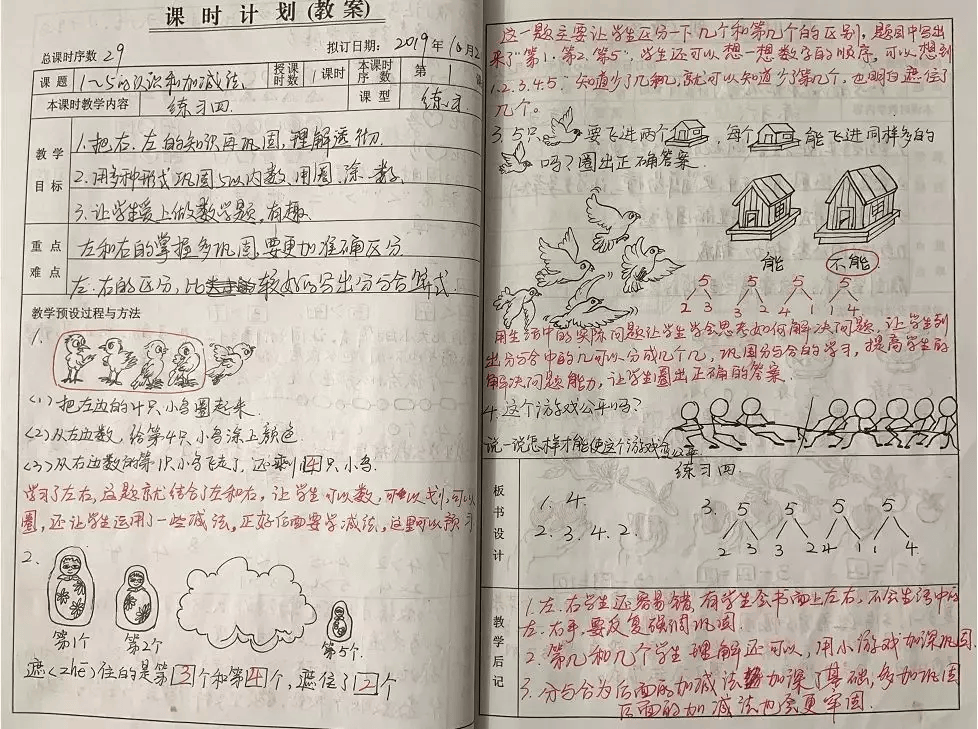 课时计划(教案)
总课时序数 29 拟订日期: 2019年10月2
课题 1~5的认识和加减法 授课时数 1课时 本课时序数 第 1
本课时教学内容 练习四 课型 练习
教学目标
1.把右、左的知识再巩固,理解透彻.
2.用多种形式巩固5以内数,用圈、涂、数
3.让学生爱上做数学题,有趣.
重点难点
左和右的掌握多巩固,要更加准确区分
左、右的区分,比较好的写出分与合算式.
教学预设过程与方法
1.
(1)把左边的4只小鸟圈起来.
(2)从左边数,给第4只小鸟涂上颜色
(3)从右边数的第1只小鸟飞走了,还剩4只小鸟.
学习了左右,这题就结合了左和右,让学生可以数,可以划,可以
圈,还让学生运用了一些减法,正好后面要学减法,这里可以预习
2.
第1个 第2个 第5个.
遮(zhē)住的是第3个和第4个,遮住了2个
这一题主要让学生区分一下几个和第几个的区别,题目中写出
来了“第1、第2、第5”,学生还可以想一想数字的顺序,可以想到
1.2.3.4.5.知道少了几和几,就可以知道少了第几个,也明白遮住了
几个。
3. 5只 要飞进两个 ,每个 能飞进同样多的
吗?圈出正确答案.
能 不能
5 5 5 5
2 3 3 2 4 1 1 4
用生活中的实际问题让学生学会思考如何解决问题,让学生列
出分与合中的几可以分成几个几,巩固分与合的学习,提高学生的
解决问题能力,让学生圈出正确的答案.
4.这个游戏公平吗?
说一说怎样才能使这个游戏公平.
板书设计
练习四
1. 4.
2. 3. 4. 2.
3. 5 5 5 5
2 3 3 2 4 1 1 4
教学后记
1.左、右学生还容易错,有学生会书面上左右,不会生活中的
左、右手,要反复强调巩固.
2.第几和几个学生理解还可以,用小游戏加深巩固.
3.分与合为后面的加减法加深了基础,多加巩固
后面的加减法内容更牢固.